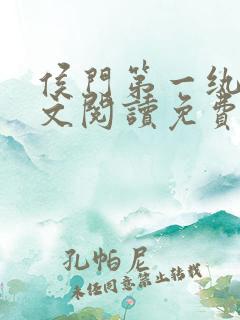 侯門第一紈
文閱讀免費
孔帕尼
未经同意禁止转载